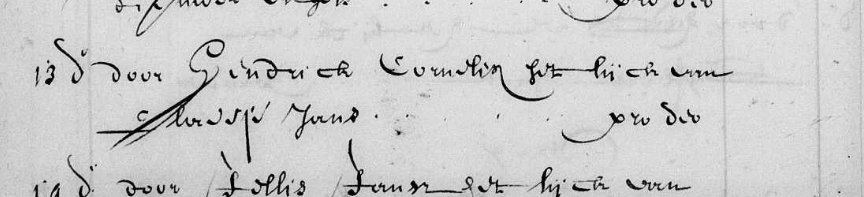 pro deo
13 do door Hendrick Cornelisz het lijck van
Claesje Jans . . . . pro deo
19 do door Jellis Jansz het lijck van